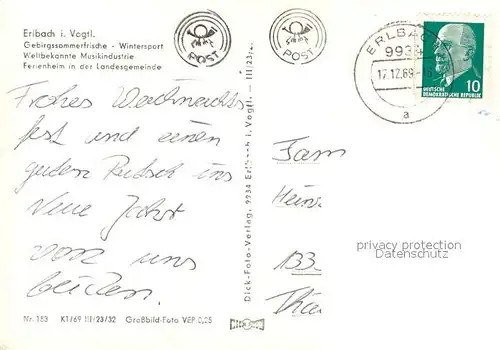 Erlbach i. Vogtl.
Gebirgssommerfrische - Wintersport
Weltbekannte Musikindustrie
Ferienheim in der Landesgemeinde
POST
POST
ERLBACH
993
17.12.69-16
a
10
DEUTSCHE
DEMOKRATISCHE REPUBLIK
Frohes Weihnachts
fest und einen
guten Rutsch ins
Neue Jahr
von uns
beiden.
Dick-Foto-Verlag, 9934 Erlbach i. Vogtl. - III/23/
Fam
Heinz
133
privacy protection
Datenschutz
Nr. 183 K1/69 III/23/32 Großbild-Foto VEP 0,25